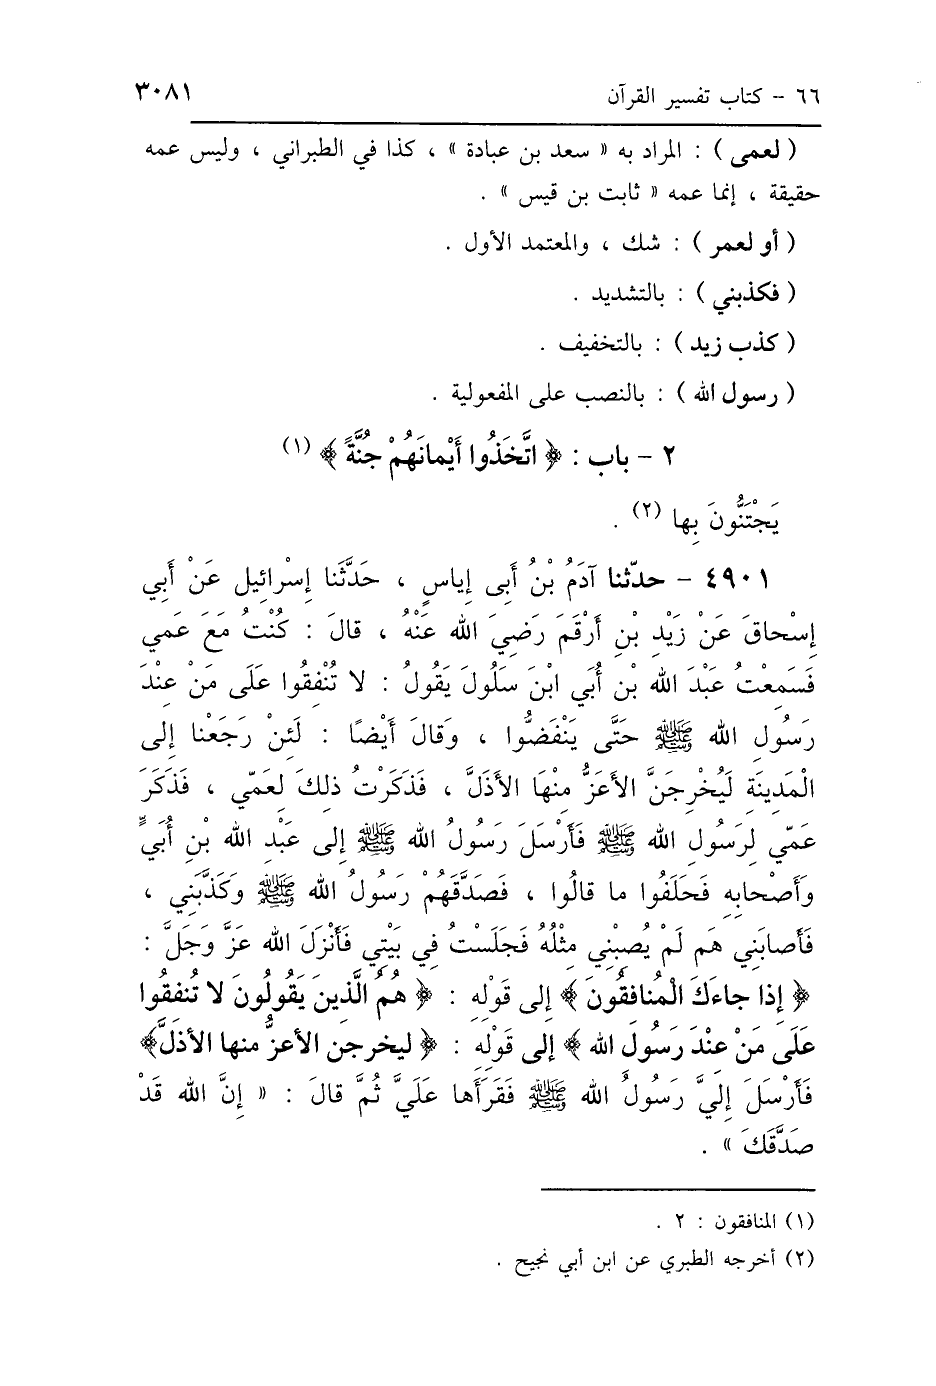 ٦٦ - كتاب تفسير القرآن ٣٠٨١
( لعمى ) : المراد به « سعد بن عبادة » ، كذا في الطبراني ، وليس عمه
حقيقة ، إنما عمه « ثابت بن قيس » .
( أو لعمر ) : شك ، والمعتمد الأول .
( فكذبني ) : بالتشديد .
( كذب زيد ) : بالتخفيف .
( رسول الله ) : بالنصب على المفعولية .
٢ - باب : ﴿ اتَّخَذُوا أَيْمانَهُمْ جُنَّةً ﴾ (١)
يَجْتَنُّونَ بِها (٢) .
٤٩٠١ - حدّثنا آدَمُ بْنُ أَبِى إياسٍ ، حَدَّثَنا إسْرائِيل عَنْ أَبِي
إسْحاقَ عَنْ زَيْدِ بْنِ أَرْقَمَ رَضِيَ الله عَنْهُ ، قالَ : كُنْتُ مَعَ عَمِي
فَسَمِعْتُ عَبْدَ الله بْن أُبَي ابْنَ سَلُولَ يَقُولُ : لا تُنْفِقُوا عَلَى مَنْ عِنْدَ
رَسُولِ الله ﷺ حَتَّى يَنْفَضُّوا ، وَقالَ أَيْضًا : لَئِنْ رَجَعْنا إلى
الْمَدِينَةِ لَيُخْرِجَنَّ الأعَزُّ مِنْهَا الأذَلَّ ، فَذَكَرْتُ ذلِكَ لِعَمّي ، فَذَكَرَ
عَمّي لِرَسُولِ الله ﷺ فَأَرْسَلَ رَسُولُ الله ﷺ إلى عَبْدِ الله بْنِ أُبَيٍّ
وَأَصْحابِهِ فَحَلَفُوا ما قالُوا ، فَصَدَّقَهُمْ رَسُولُ الله ﷺ وَكَذَّبَنِي ،
فَأَصابَنِي هَم لَمْ يُصِبْنِي مِثْلُهُ فَجَلَسْتُ فِي بَيْتِي فَأَنْزَلَ الله عَزَّ وَجَلَّ :
﴿ إذا جاءَكَ الْمُنافِقُونَ ﴾ إلى قَوْلِهِ : ﴿ هُمُ الَّذِينَ يَقُولُونَ لا تُنفِقُوا
عَلَى مَنْ عِنْدَ رَسُولِ الله ﴾ إلى قَوْلِهِ : ﴿ ليخرجن الأعزُّ منها الأذلَّ ﴾
فَأَرْسَلَ إلَيَّ رَسُولُ الله ﷺ فَقَرَأَها عَلَيَّ ثُمَّ قالَ : « إنَّ الله قَدْ
صَدَّقَكَ » .
(١) المنافقون : ٢ .
(٢) أخرجه الطبري عن ابن أبي نجيح .